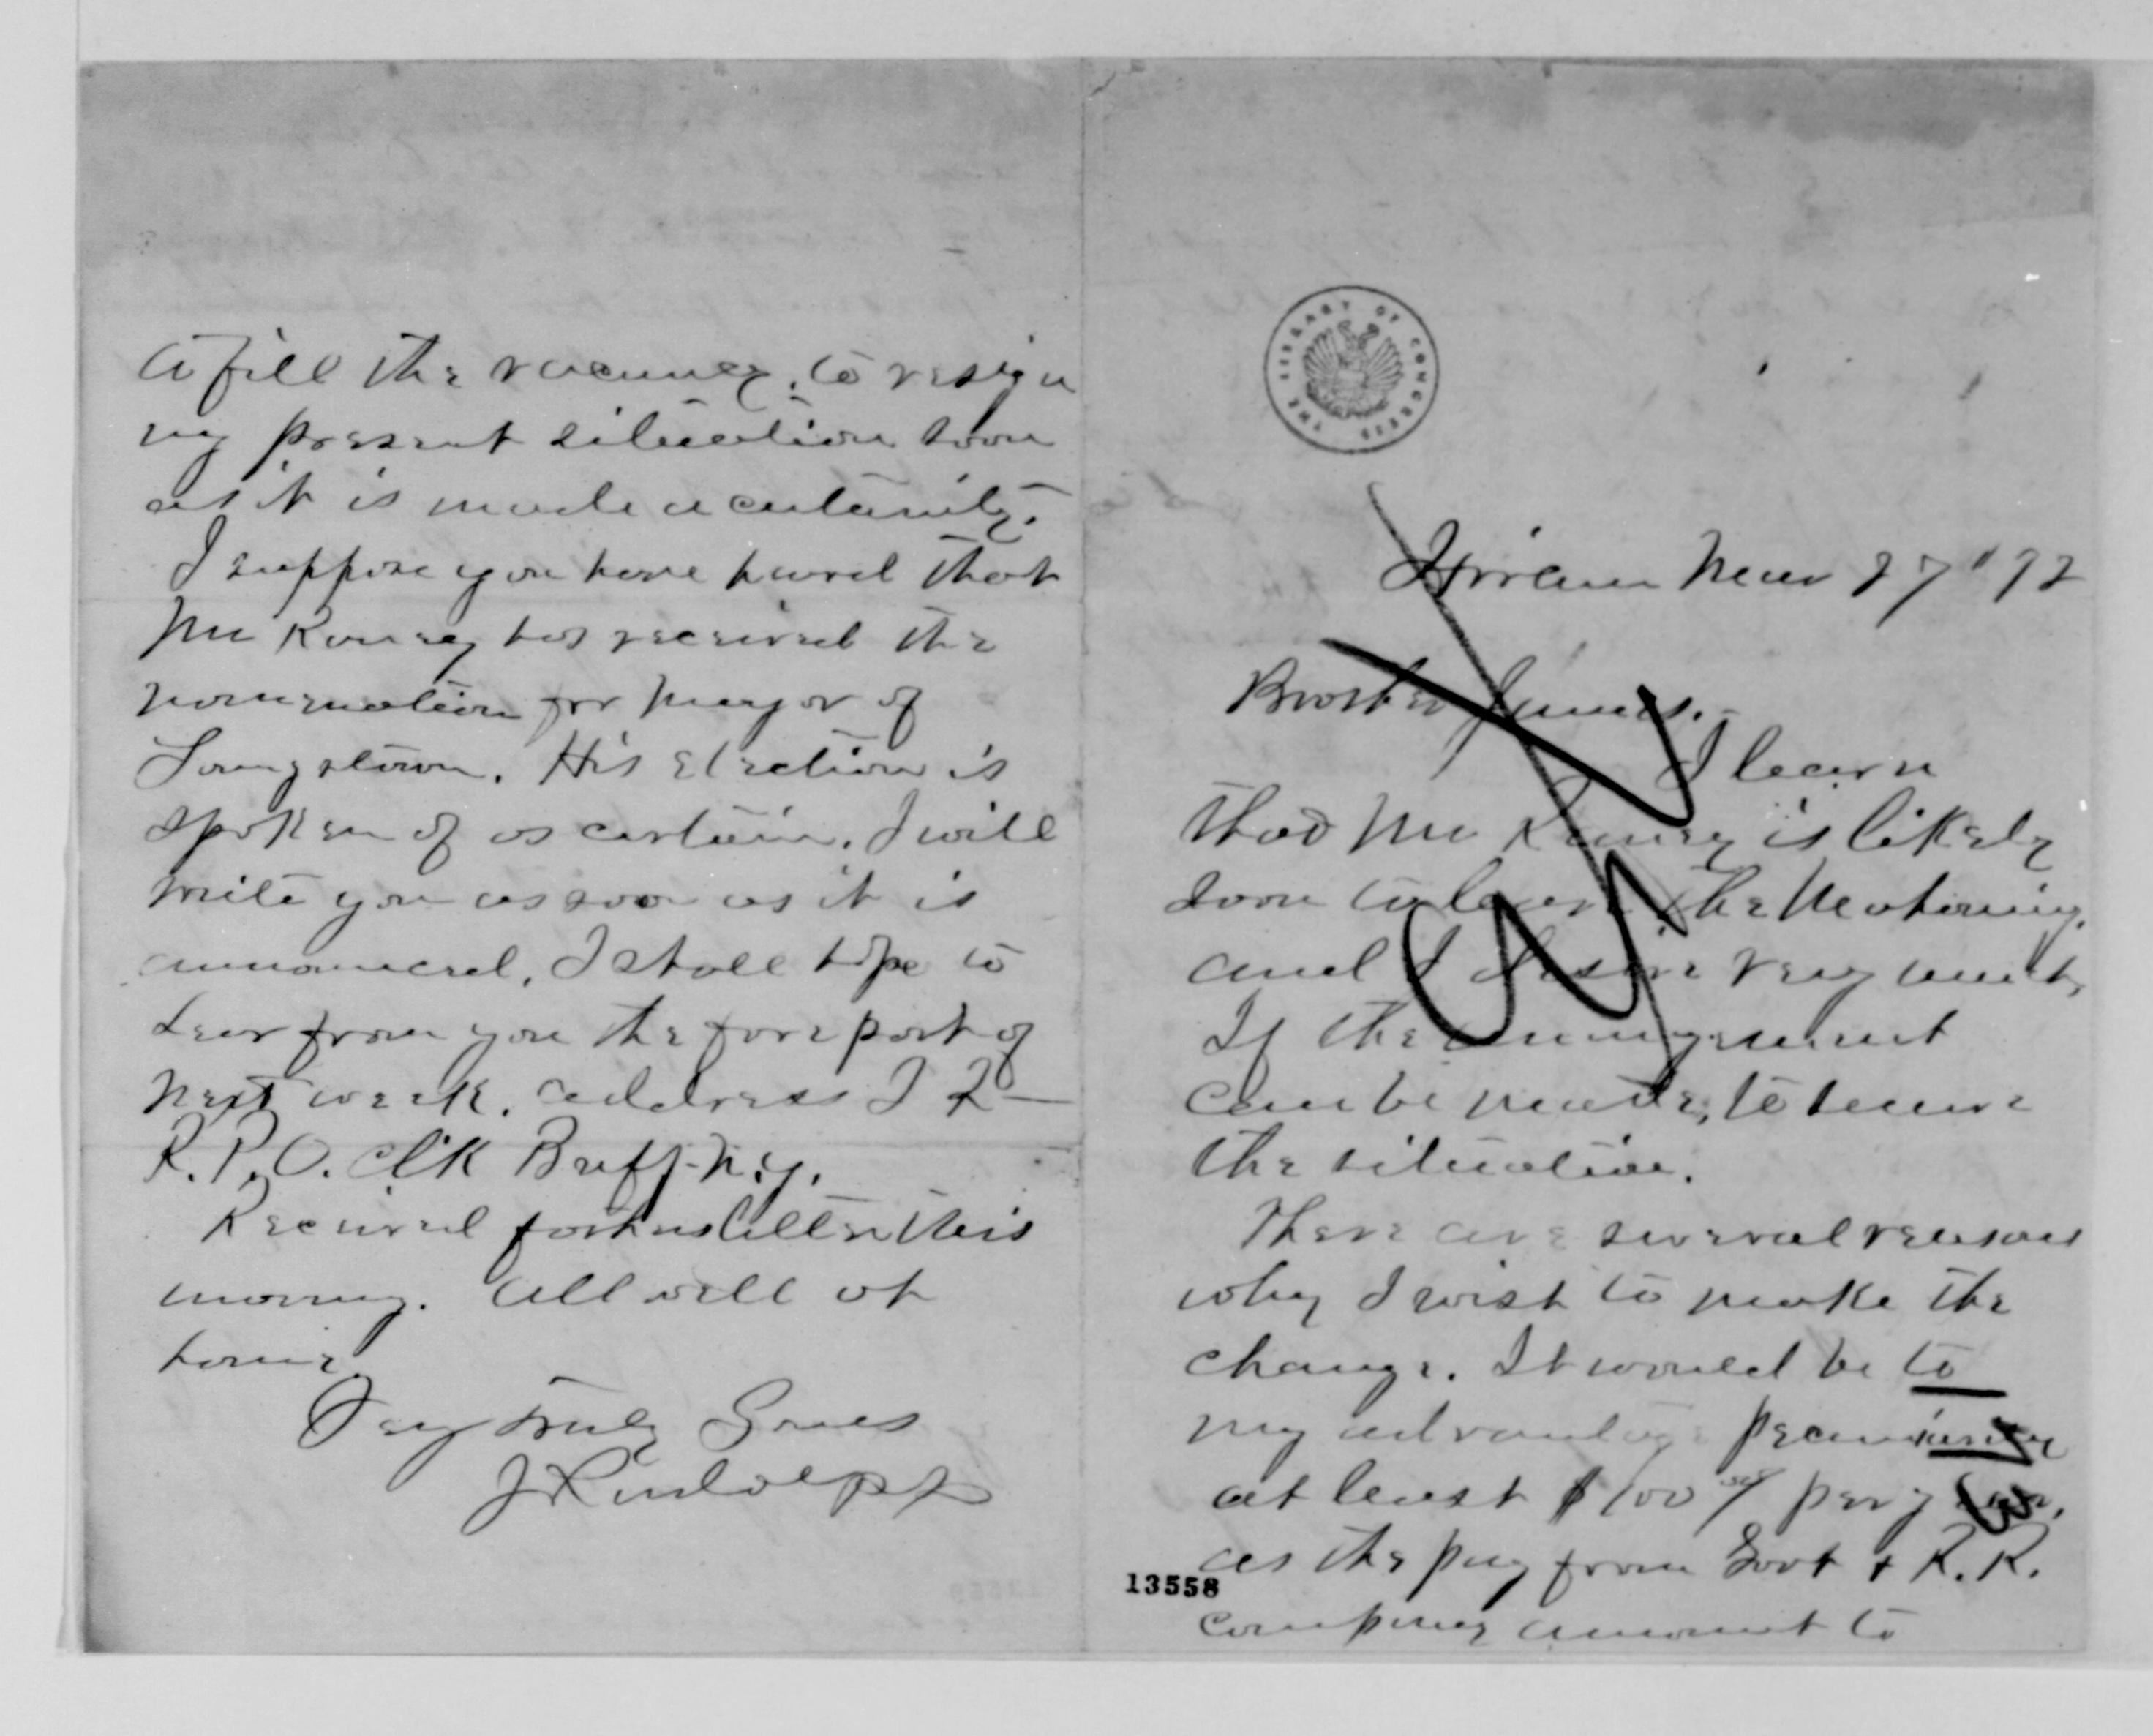 to fill the vacancy, to resign
my present situation soon
as it is made a certainty.
I suppose you have heard that
Mr Raney has received the
nomination for Mayor of
Youngstown. His election is
spoken of as certain. I will
write you as soon as it is
announced, I shall hope to
hear from you the fore part of
next week. address J R—
R. P. O. Clk Buff. N.y.
Received fathers letter this
morning. All well at
home.
Very truly Yours
J Rudolph
THE LIBRARY OF CONGRESS
Hiram Mar 27" 72
Brother James.-
I learn
that Mr Raney is likely
soon to leave the Mahoning,
and I desire very much,
If the arrangement
can be made, to secure
the situation.
There are several reasons
why I wish to make the
change. It would be to
my advantage pecuniarily
at least $100 per year,
as the pay from Govt + R.R.
company amount to
13558